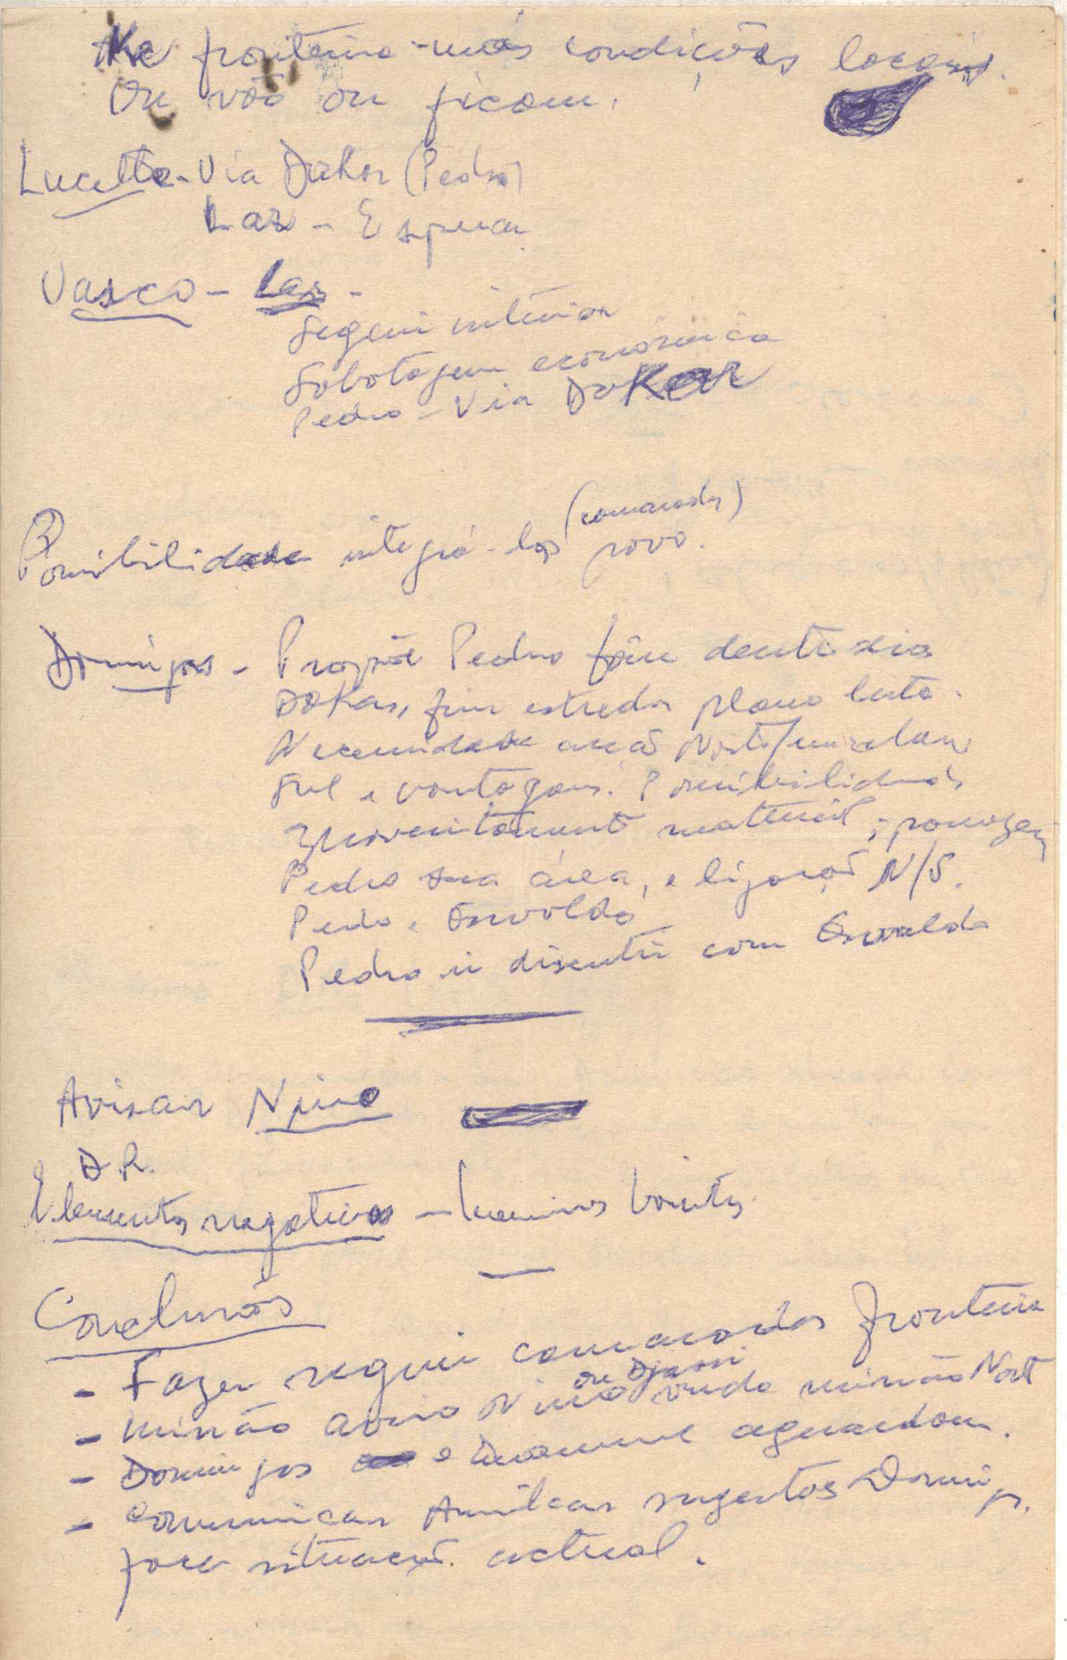 fronteira - más condições locais.
Ou vão ou ficam.
Lucette - Via Dakar (Pedro)
Laz - Esperar
Vasco - Laz -
Seguir interior
Sabotagem económica
Pedro - Via Dakar
(camaradas)
Possibilidade integrá-los povo.
Domingos - Propõe Pedro fôsse dentro via
Dakar, fim estudar plano luta.
Necessidade acção Norte/
Sul e vantagens. Possibilidades
aproveitamento material, passagem
Pedro sua área, e ligação N/S.
Pedro e Osvaldo
Pedro ir discutir com Osvaldo
Avisar Nino
D.R.
Elementos negativos -
Conclusões
- Fazer seguir camaradas fronteira
ou Djassi
- Missão aviso Nino vindo missão Norte
- Domingos e aguardam.
- Comunicar Amílcar sugestões Domingos
face situação actual.